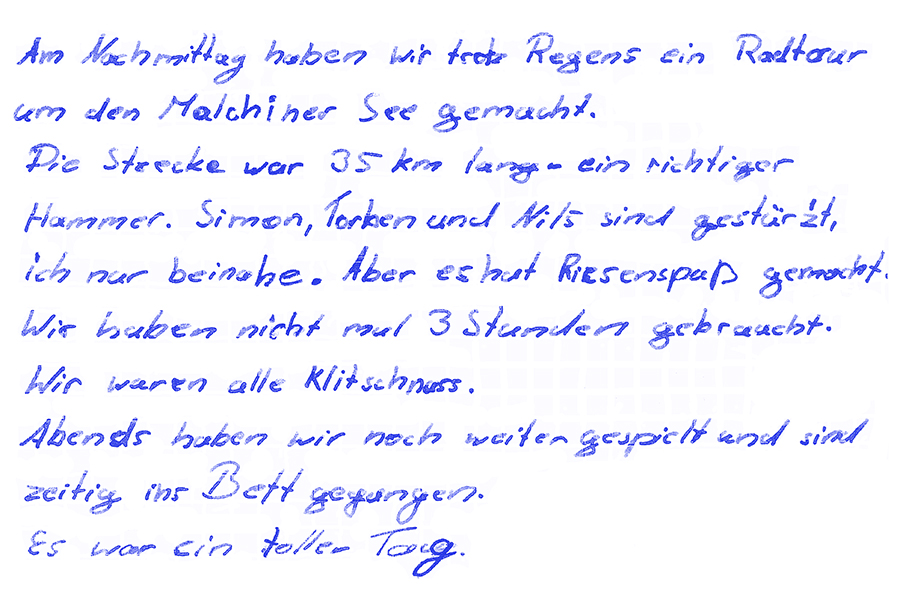 Am Nachmittag haben wir trotz Regens ein Radtour
um den Malchiner See gemacht.
Die Strecke war 35 km lang - ein richtiger
Hammer. Simon, Torben und Nils sind gestürzt,
ich nur beinahe. Aber es hat Riesenspaß gemacht.
Wir haben nicht mal 3 Stunden gebraucht.
Wir waren alle Klitschnass.
Abends haben wir noch weiter gespielt und sind
zeitig ins Bett gegangen.
Es war ein toller Tag.